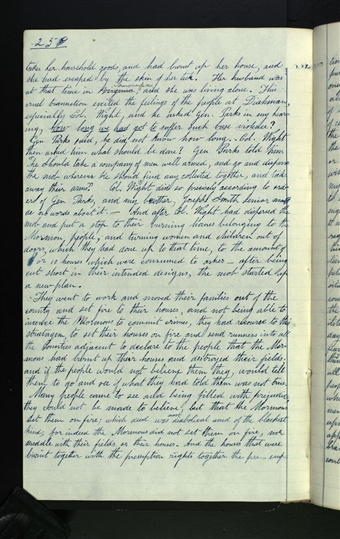 258
take her household goods, and had burnt up her house, and
she had escaped by the skin of her teeth. Her husband was
at that time in Tennessee, and she was living alone. This
cruel transaction excited the feelings of the people at Diahman,
especially Col. Wight, and he asked Gen. Parks in my hear
ing, how long we had got to suffer such base violence?
Gen Parks said, he did not know how long. Col. Wight
then asked him what should be done? Gen. Parks told him
he should take a company of men well armed, and go and disperse
the mob wherever he should find any collected together, and take
away their arms. Col. Wight did so precisely according to ord
ers of Gen. Parks, and my brother, Joseph Smith senior made
no words about it. And after Col. Wight had dispersed the
mob and put a stop to their burning houses belonging to the
Mormon people, and turning women and children out of
doors, which they had done up to that time, to the amount
or 10 houses which were consumed to ashes — after being
cut short in their intended designs, the mob started up
a new plan.
They went to work and moved their families out of the
county and set fire to their houses, and not being able to
incense the Mormons to commit crimes, they had recourse to this
stratagem, to set their houses on fire and send runners into all
the counties adjacent to declare to the people that the Mor
mons had burnt up their houses and destroyed their fields.
and if the people would not believe them they would tell
them to go and see if what they had told them was not true.
Many people came to see and being filled with prejudice
they could not be made to believe, but that the Mormons
set them on fire; which deed was diabolical and of the blackest
kind; for indeed the Mormons did not set them on fire, nor
meddle with their fields or their houses. And the houses that were
burnt together with the preemption rights together the